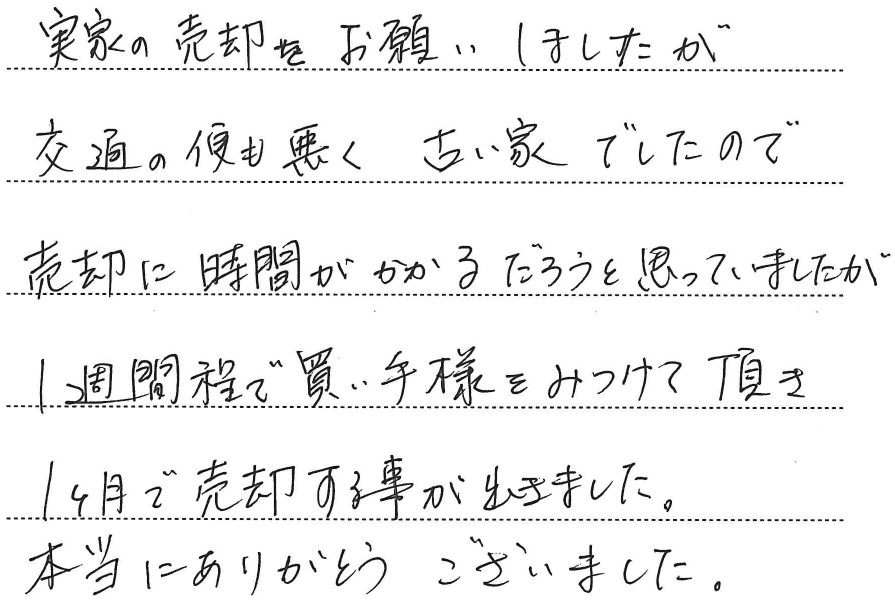 実家の売却をお願いしましたが
交通の便も悪く 古い家でしたので
売却に時間がかかるだろうと思っていましたが
1週間程で買い手様をみつけて頂き
1ヶ月で売却する事が出きました。
本当にありがとうございました。